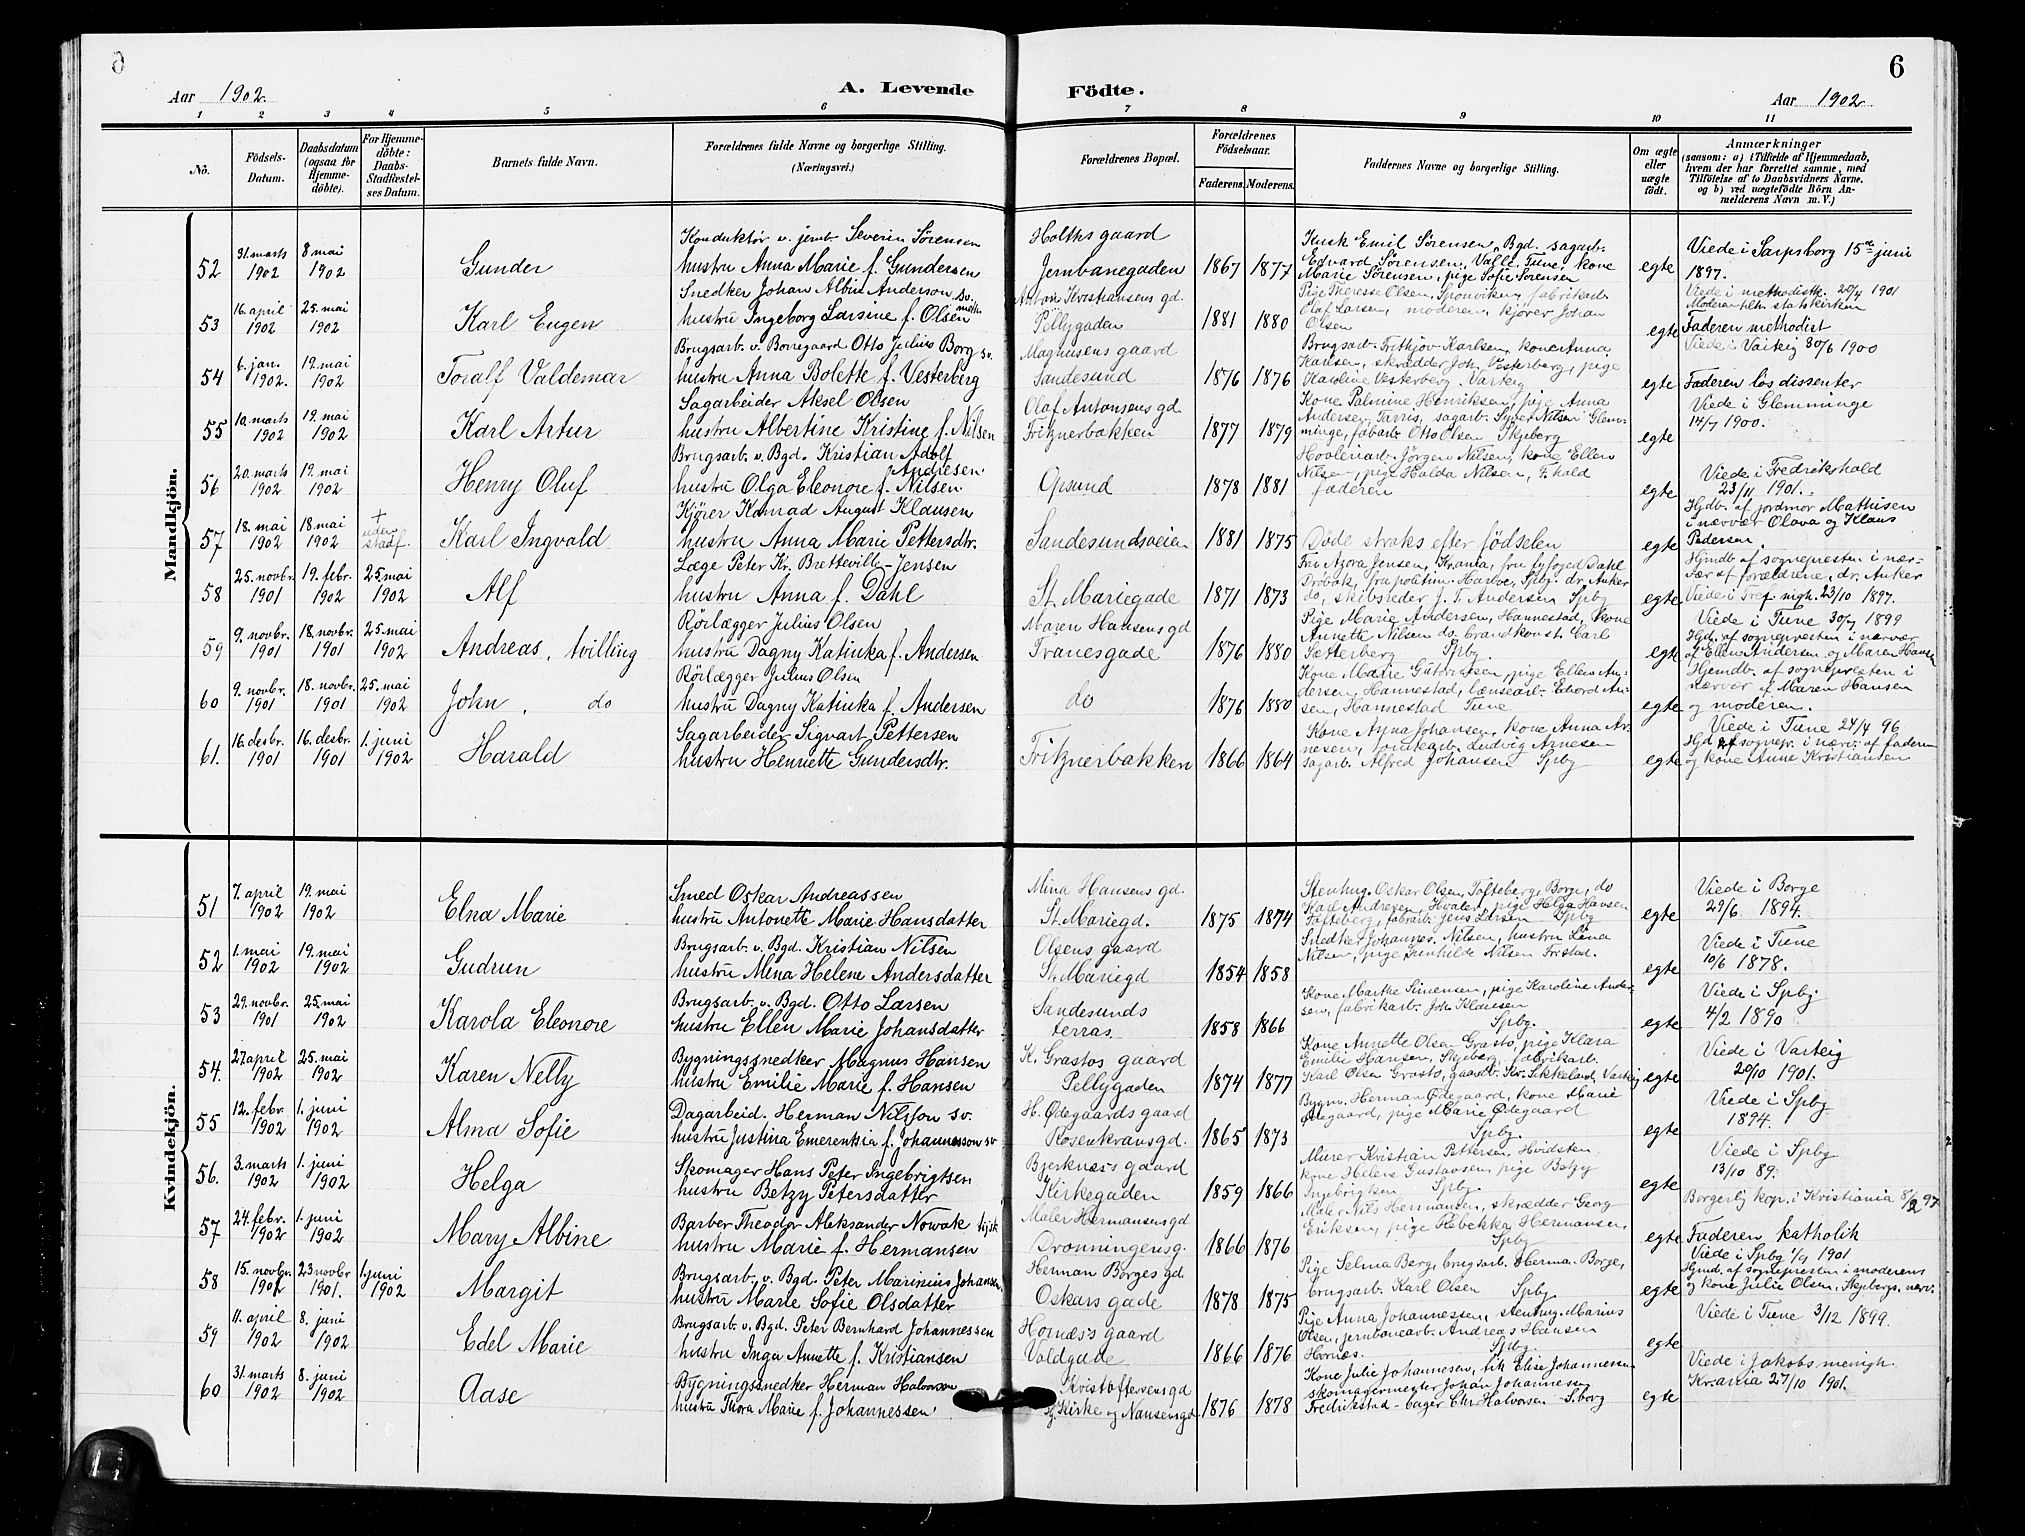 6
Aar 1902.
A. Levende
Födte.
6
Aar 1902
1 2 3 4 5 6 7 8 9 10 11
No.
Födsels-Datum.
Daabsdatum (ogsaa for Hjemme-döbte).
For Hjemme-döbte: Daabs-Stadfæstel-ses Datum.
Barnets fulde Navn.
Forældrenes fulde Navne og borgerlige Stilling.
(Næringsvei.)
Forældrenes Bopæl.
Forældrenes Födselsaar.
Faderens. Moderens.
Faddernes Navne og borgerlige Stilling.
Om ægte eller uægte födt.
Anmærkninger
(saasom: a) i Tilfælde af Hjemmedaab, hvem der har forrettet samme, med Tilföielse af to Daabsvidners Navne. og b) ved uægtefödte Börn An-melderens Navn m. V.)
Mandkjön.
52 31. marts 1902 8 mai 1902 Gunder
Konduktør v. jernb. Severin Sørensen
hustru Anna Marie f. Gundersen
Holths gaard
Jernbanegaden 1867 1877
Kusk Emil Sørensen, Bgd. sagarb.
Edvard Sørensen, Valle, Tune, kone
Marie Sørensen, pige Sofie Sørensen
egte
Viede i Sarpsborg 15de juni
1897.
53 16. april 1902 25. mai 1902 Karl Eugen
Snedker Johan Albin Anderson sv.
hustru Ingeborg Larsine f. Olsen meth.
Anton Kristiansens gd.
Pellygaden 1881 1880
Pige Theresse Olsen, Sponviken, fabrikarb.
Olaf Larsen, moderen, kjører Johan
Olsen
egte
Viede i methodistk. 20/4 1901
Moderen tilh. statskirken
Faderen methodist
54 6. jan. 1902. 19. mai 1902 Toralf Valdemar
Brugsarb. v. Borregaard Otto Julius Borg sv.
hustru Anna Bolette f. Vesterberg
Magnusens gaard
Sandesund 1876 1876
Brugsarb. Frithjov Karlsen, kone Anna
Karlsen, skrædder Joh. Vesterberg, pige
Karoline Vesterberg. Varteig
egte
Viede i Varteig 30/6 1900
Faderen løs dissenter
55 10. marts 1902 19. mai 1902 Karl Artur
Sagarbeider Aksel Olsen
hustru Albertine Kristine f. Nilsen
Olaf Antonsens gd.
Fritznerbakken 1877 1879
Kone Palmine Henriksen, pige Anna
Andersen, Tarris, sagarb. Syver Nilsen Glem-
minge, fabarb. Otto Olsen Skjeberg
egte
Viede i Glemminge
14/7 1900.
56 20. marts 1902 19. mai 1902 Henry Oluf
Brugsarb. v. Bgd. Kristian Adolf
Andresen.
hustru Olga Eleonore f. Nilsen.
Grsund 1878 1881
Høvleriarb. Jørgen Nilsen, kone Ellen
Nilsen, pige Hulda Nilsen, F.hald
faderen
egte
Viede i Fredrikshald
23/11 1901.
57 18. mai 1902 18. mai 1902 + uden stadf. Karl Ingvald
Kjører Konrad August Klausen
hustru Anna Marie Pettersdtr.
Sandesundsveien 1881 1875
Døde straks efter fødselen
egte
Hjdb. af jordmor Mathisen
i nærvær Olava og Klaus
Pedersen.
58 25. novbr. 1901 19. febr. 1902 25. mai 1902 Alf
Læge Peter Kr. Bretteville-Jensen
hustru Anna f. Dahl
St. Mariegade 1871 1873
Fru Azora Jensen, Kr.ania, fru byfoged Dahl
Drøbak, fru politim. Harboe, Spbg. dr. Anker
do, skibsreder J. T. Andersen Spbg
egte
Hjmdb. af sognepresten i nær-
vær af forældrene, dr. Anker
Viede i Tref. nigh. 23/10 1897.
59 9. novbr. 1901 18. novbr. 1901 25. mai 1902 Andreas, tvilling
Rørlægger Julius Olsen
hustru Dagny Katinka f. Andersen
Maren Hansens gd
Tranesgade 1876 1880
Pige Marie Andersen, Hannestad, kone
Annette Nilsen do, brandkonst. Carl
Sætterberg Spbg.
egte
Viede i Tune 30/7 1899
Hjd. af sognepresten i nærvær
af Ellen Andersen og Maren Hansen
60 9. novbr. 1901 18. novbr. 1901 25. mai 1902 John, do
Rørlægger Julius Olsen
hustru Dagny Katinka f. Andersen
do 1876 1880
Kone Marie Gulbransen, pige Ellen An-
dersen, Hannestad, lænsearb. Edvard An-
sen, Hannestad Tune
egte
Hjemdb. af sognepresten i
nærvær af Maren Hansen
og moderen.
61. 16. desbr. 1901 16. desbr. 1901 1. juni 1902 Harald
Sagarbeider Sigvart Pettersen
hustru Henriette Gundersdtr.
Fritznerbakken 1866 1864
Kone Anna Johansen, kone Anna Ar-
nesen, brukarb. Ludvig Arnesen
sagarb. Alfred Johansen Spbg
egte
Viede i Tune 24/4 96
Hjd af sognepr. i nærv. af faderen
og kone Anne Kristiansen
Kvindekjön.
51 7. april 1902 19. mai 1902 Elna Marie
Smed Oskar Andreassen
hustru Antonette Marie Hansdatter
Mina Hansens gd.
St. Mariegd. 1875 1874
Stenhug. Oskar Olsen, Tofteberg, Borge, do
Karl Andresen, Hvaler, pige Helga Hansen
Tofteberg, fabrarb. Jens Larsen Spbg
egte
Viede i Borge
29/6 1894.
52 1. mai 1902 19. mai 1902 Gudrun
Brugsarb. v. Bgd. Kristian Nilsen
hustru Mina Helene Andersdatter
Olsens gaard
St. Mariegd 1854 1858
Snedker Johannes Nilsen, hustru Lina
Nilsen, pige Gunhilde Nilsen Fr.stad.
egte
Viede i Tune
10/6 1878.
53 29. novbr. 1901 25. mai 1902 Karola Eleonore
Brugsarb. v. Bgd. Otto Larsen
hustru Ellen Marie Johansdatter
Sandesunds
terras. 1858 1866
Kone Marthe Simensen, pige Karoline Ander-
sen, fabrikarb. Joh. Klausen
Spbg.
egte
Viede i Spbg
4/2 1890
54. 27. april 1902 25. mai 1902 Karen Nelly
Bygningssnedker Magnus Hansen
hustru Emilie Marie f. Hansen
K. Grastos gaard
Pellygaden 1874 1877
Kone Annette Olsen Grasto, pige Klara
Emilie Hansen, Skjeberg, fabrikarb.
Karl Olsen Grasto, gaardbr. Kr. Sikkeland, Varteig
egte
Viede i Varteig
20/10 1901.
55 12. febr 1902 1. juni 1902 Alma Sofie
Dagarbeid. Herman Nilsson sv.
hustru Justina Emerentsia f. Johannesson sv
H. Ødegaards gaard
Rosenkransgd. 1865 1873
Bygm. Herman Ødegaard, kone Marie
Ødegaard, pige Marie Ødegaard
Spbg.
egte
Viede i Spbg
1894.
56. 3. marts 1902 1. juni 1902 Helga
Skomager Hans Peter Ingebrigtsen
hustru Betzy Petersdatter
Bjerknæs's gaard
Kirkegaden 1859 1866
Murer Kristian Pettersen, Hvidsten,
kone Helene Gustavsen, pige Betzy
Ingebrigtsen Spbg.
egte
Viede i Spbg
13/10 89.
57 24. febr. 1902 1. juni 1902 Mary Albine
Barber Theodor Aleksander Nowak tysk
hustru Marie f. Hermansen
Maler Hermansens gd
Dronningensg. 1866 1876
Maler Nils Hermansen, skrædder Georg
Eriksen, pige Rebekka Hermansen,
Spbg
egte
Borgerlig kop. i Kristiania 8/2 97
Faderen katholik
58 15. novbr. 1901 23 novbr 1901. 1. juni 1902 Margit
Brugsarb. v. Bgd. Peter Marinius Johansen
hustru Marie Sofie Olsdatter
Herman Borges gd
Oskars gade 1878 1875
Pige Selma Berg, brugsarb. Herma. Borge,
brugsarb. Karl Olsen Spbg.
egte
Viede i Spbg 1/9 1901
Hjmd. af sognepresten i moderens
og kone Julie Olsen, Skjebergs nærv.
59 11. april 1902 8. juni 1902 Edel Marie
Brugsarb. v. Bgd. Peter Bernhard Johannessen
hustru Inga Annette f. Kristiansen
Hornæs's gaard
Voldgade 1866 1876
Pige Anna Johannessen, stenhug. Marius
Olsen, jernbanearb. Andreas Hansen
Hornæs. Spbg.
egte
Viede i Tune 3/12 1899.
60 31. marts 1902 8. juni 1902 Aase
Bygningssnedker Herman Halvorson
hustru Thora Marie f. Johannessen
Kristoffersens gd
Hj. Kirke og Nansensgd 1876 1878
Kone Julie Johannesen, frk Elise Johannessen
skomagermester Johan Johannessen
Fredrikstad - bager Chr. Halvorsen S.borg
egte
Viede i Jakobs menigh.
Kr.ania 27/10 1901.